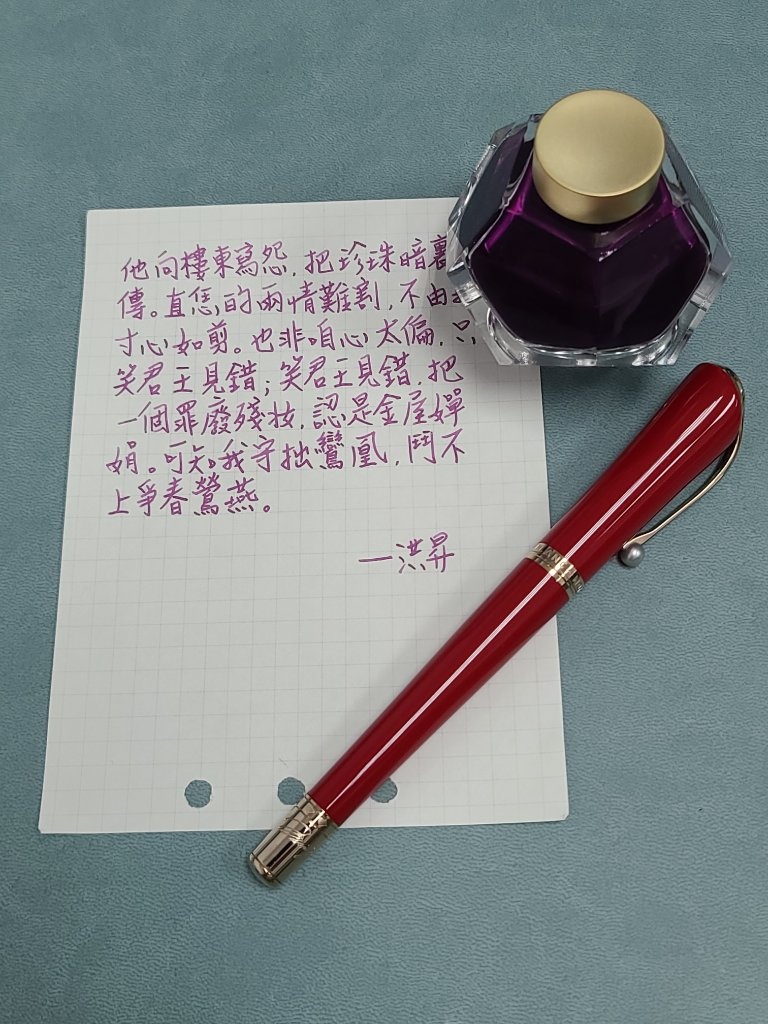 他向樓東寫怨，把珍珠暗裏
傳。直恁的兩情難割，不由
寸心如剪。也非咱心太偏，只
笑君王見錯；笑君王見錯，把
一個罪廢殘妝，認是金屋嬋
娟。可知我守拙鸞凰，鬥不
上爭春鶯燕。
—洪昇